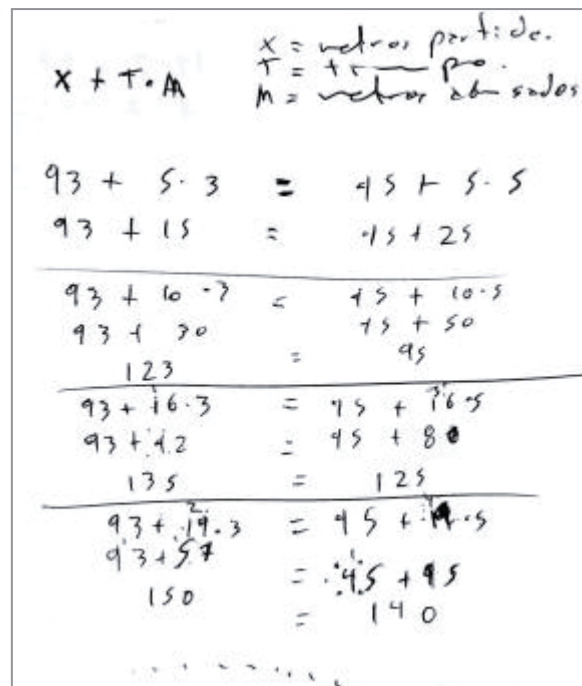 x = metros partida.
x + T · M
T =
M = metros
93 + 5 · 3 = 45 + 5 · 5
93 + 15 = 45 + 25
93 + 10 · 3 = 45 + 10 · 5
93 + 30 45 + 50
123 = 95
93 + 16 · 3 = 45 + 16 · 5
93 + 42 = 45 + 80
135 = 125
93 + 19 · 3 = 45 + 19 · 5
93 + 57 = 45 + 95
150 = 140